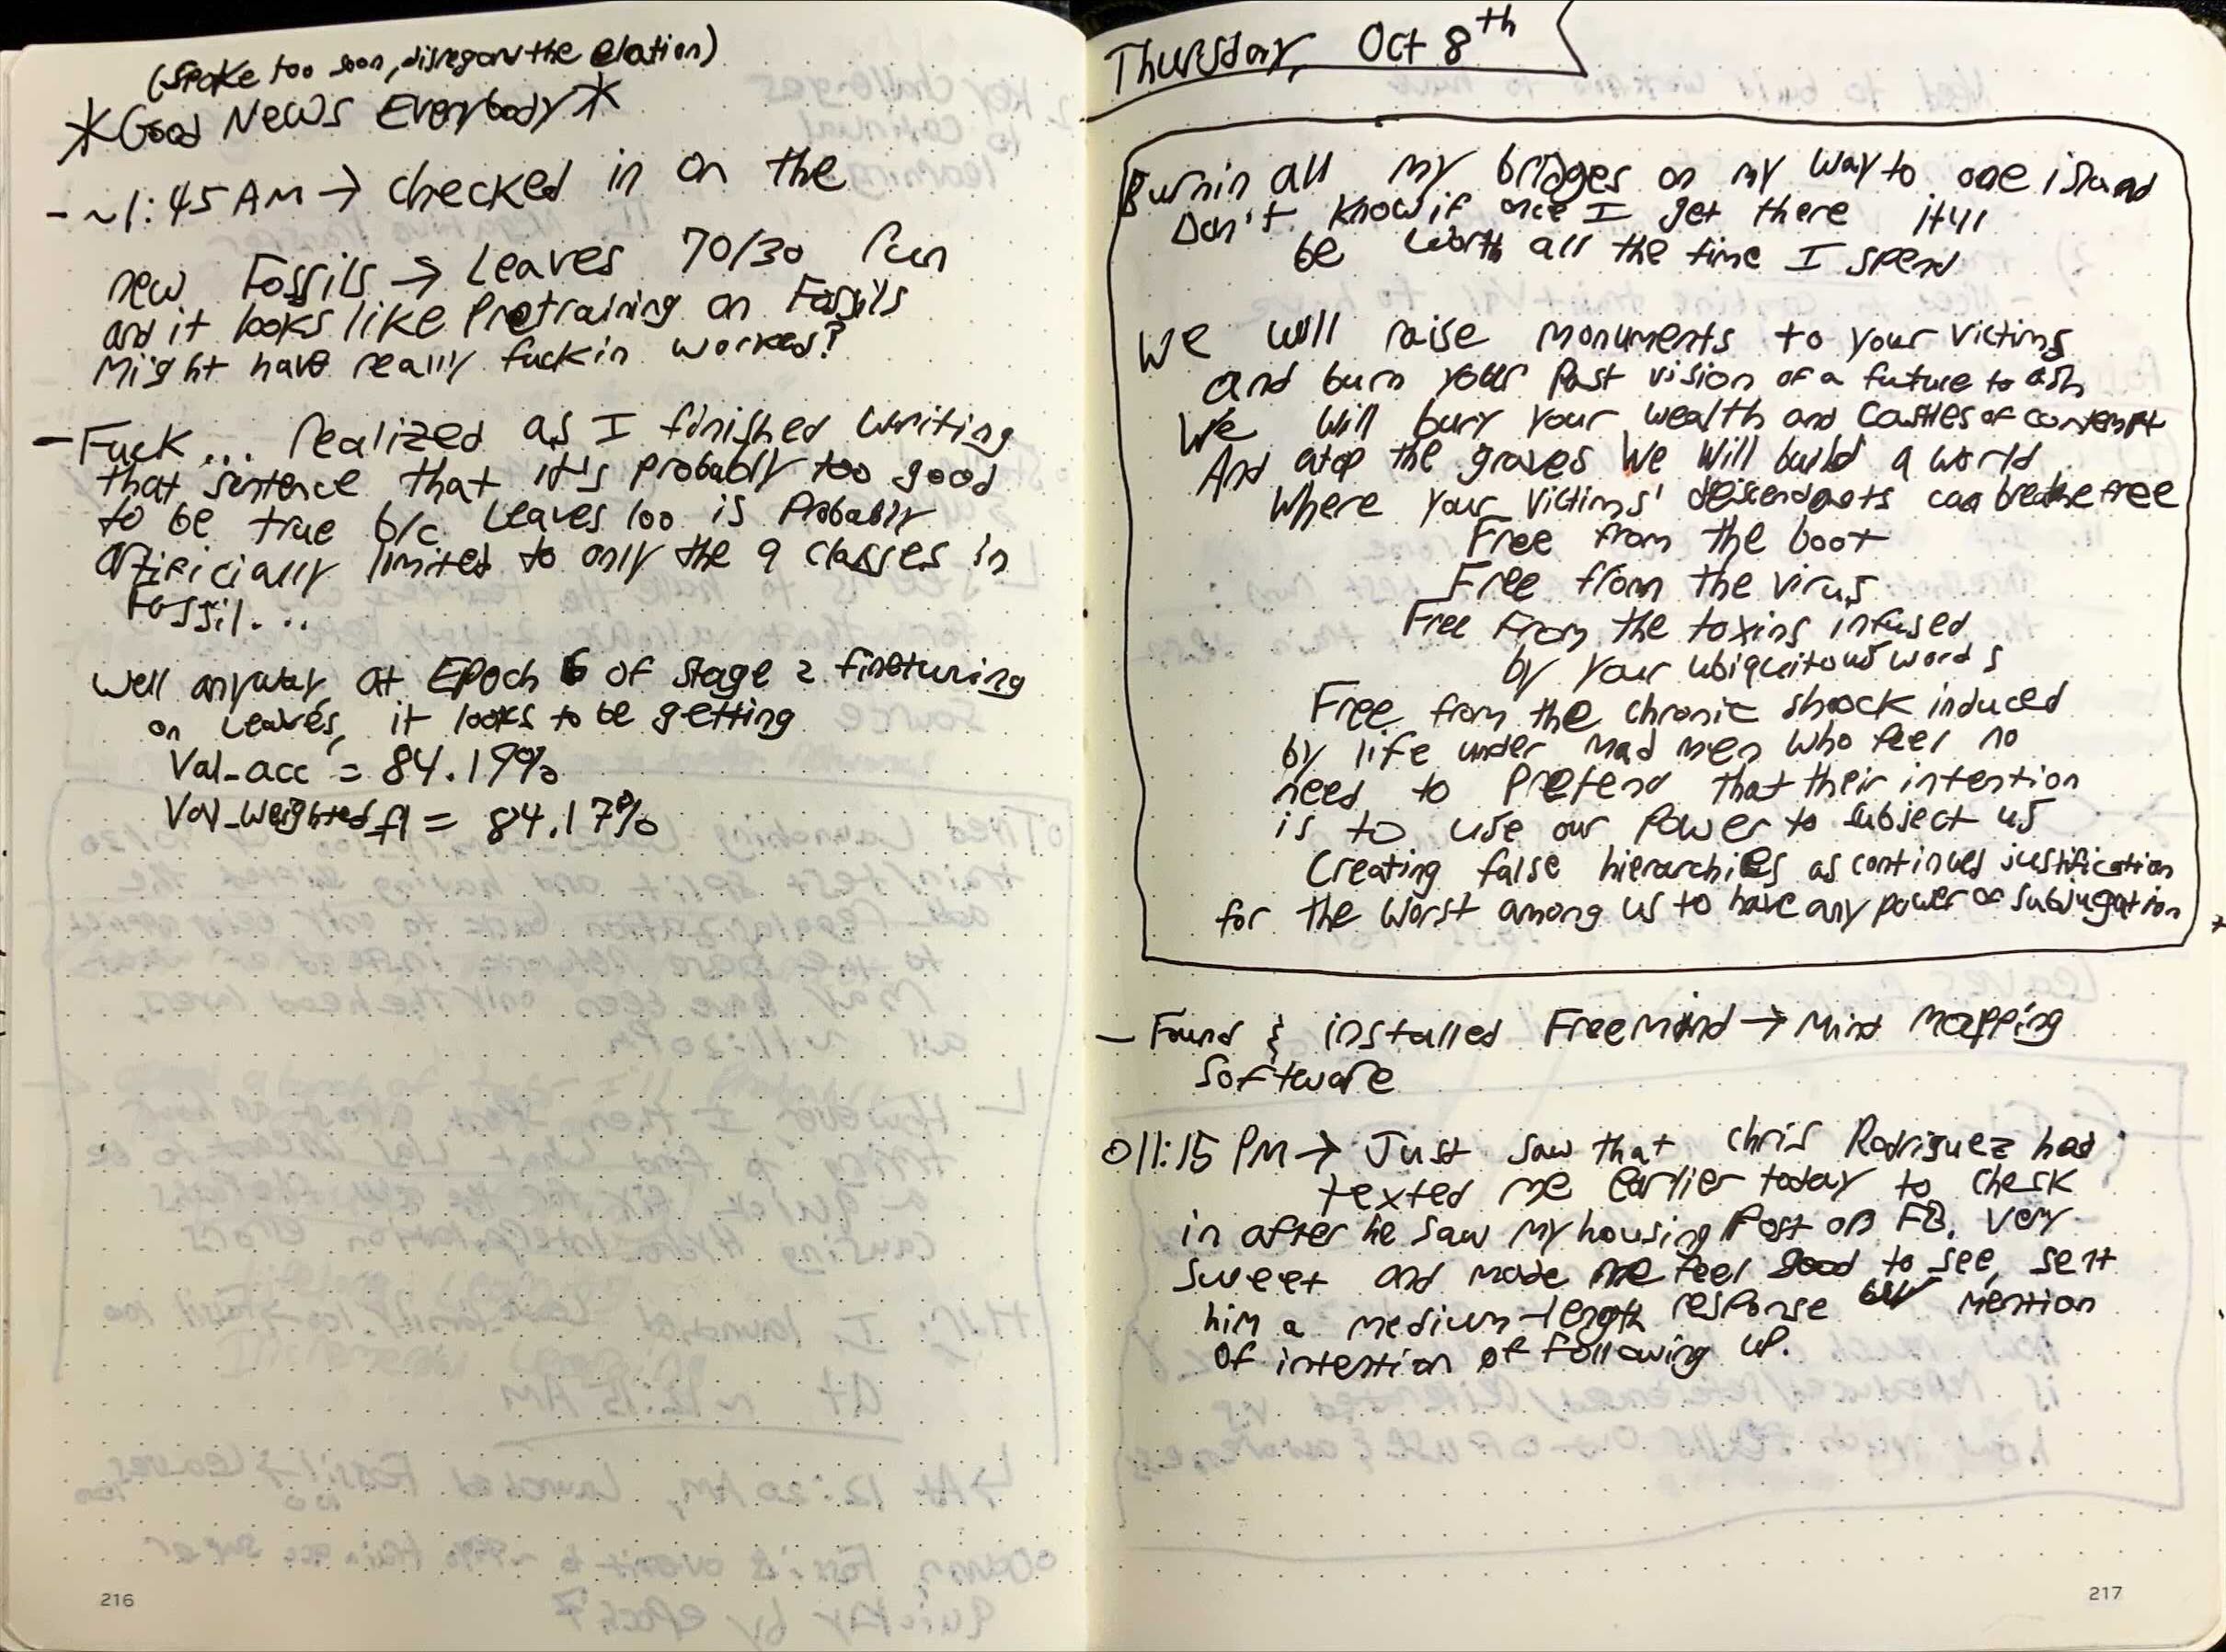 (spoke too soon, disregard the elation)
*Good News Everybody*
- ~1:45 AM → checked in on the
new Fossils → Leaves 70/30 run
and it looks like pretraining on Fossils
Might have really fuckin worked?
- Fuck... realized as I finished writing
that sentence that it's probably too good
to be true b/c Leaves 100 is Probably
artificially limited to only the 9 classes in
Fossil...
Well anyway, at Epoch 6 of stage 2 finetuning
on Leaves, it looks to be getting
Val_acc = 84.19%
Val_weighted_f1 = 84.17%
216
Thursday, Oct 8th
Burnin all my bridges on my way to one island
Don't know if once I get there it'll
be worth all the time I spend
We will raise monuments to your victims
and burn your past vision of a future to ash
We will bury your wealth and Castles of contempt
And atop the graves we will build a world
Where your victims' descendants can breathe free
Free from the boot
Free from the virus
Free From the toxins infused
by your ubiquitous words
Free from the chronic shock induced
by life under mad men who feel no
need to Pretend that their intention
is to use our power to subject us
Creating false hierarchies as continued justification
for the worst among us to have any power of subjugation
- Found & installed FreeMind → Mind mapping
Software
○ 11:15 PM → Just saw that Chris Rodriguez had
texted me earlier today to check
in after he saw my housing Post on FB. Very
sweet and made me feel good to see, sent
him a medium-length response w/ mention
Of intention of following up.
217